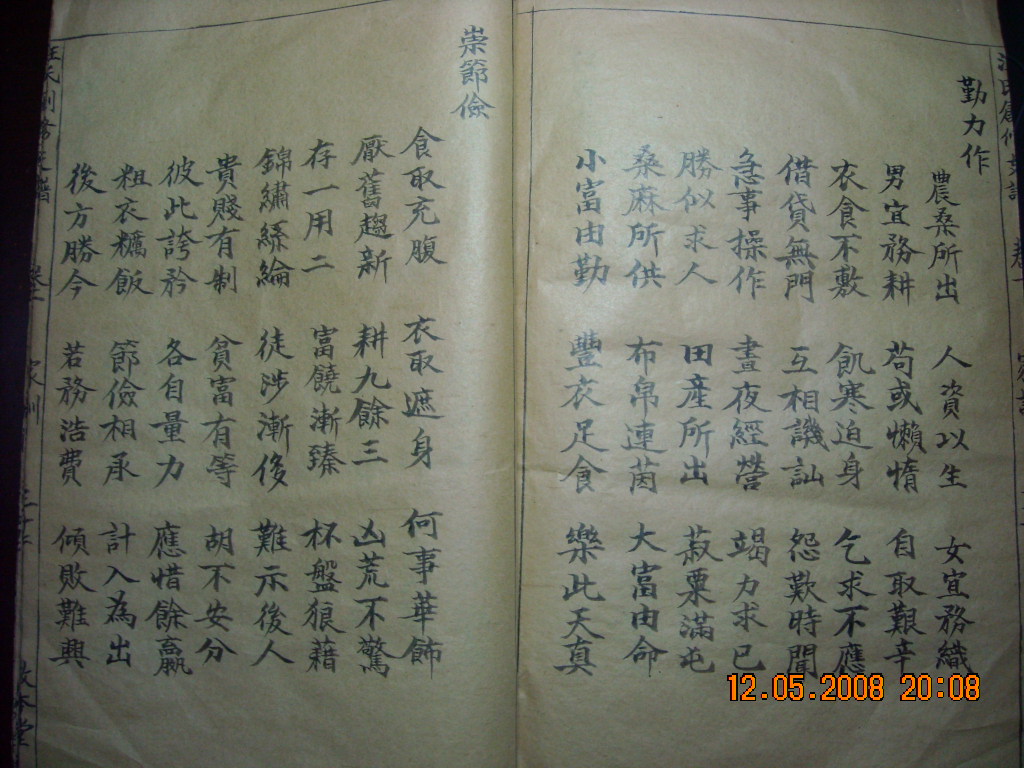 勤力作
農桑所出 人資以生 女宜務織
男宜務耕 苟或懶惰 自取艱辛
衣食不敷 飢寒迫身 乞求不應
借貸無門 互相譏訕 怨歎時聞
急事操作 晝夜經營 竭力求已
勝似求人 田產所出 菽粟滿屯
桑麻所供 布帛連茵 大富由命
小富由勤 豐衣足食 樂此天真
崇節儉
食取充腹 衣取遮身 何事華飾
厭舊趨新 耕九餘三 凶荒不驚
存一用二 富饒漸臻 杯盤狼藉
錦繡絲綸 徒涉漸侈 難示後人
貴賤有制 貧富有等 胡不安分
彼此誇矜 各自量力 應惜餘贏
粗衣糲飯 節儉相承 計入為出
後方勝今 若務浩費 傾敗難興
家訓
敦本堂
12.05.2008 20:08